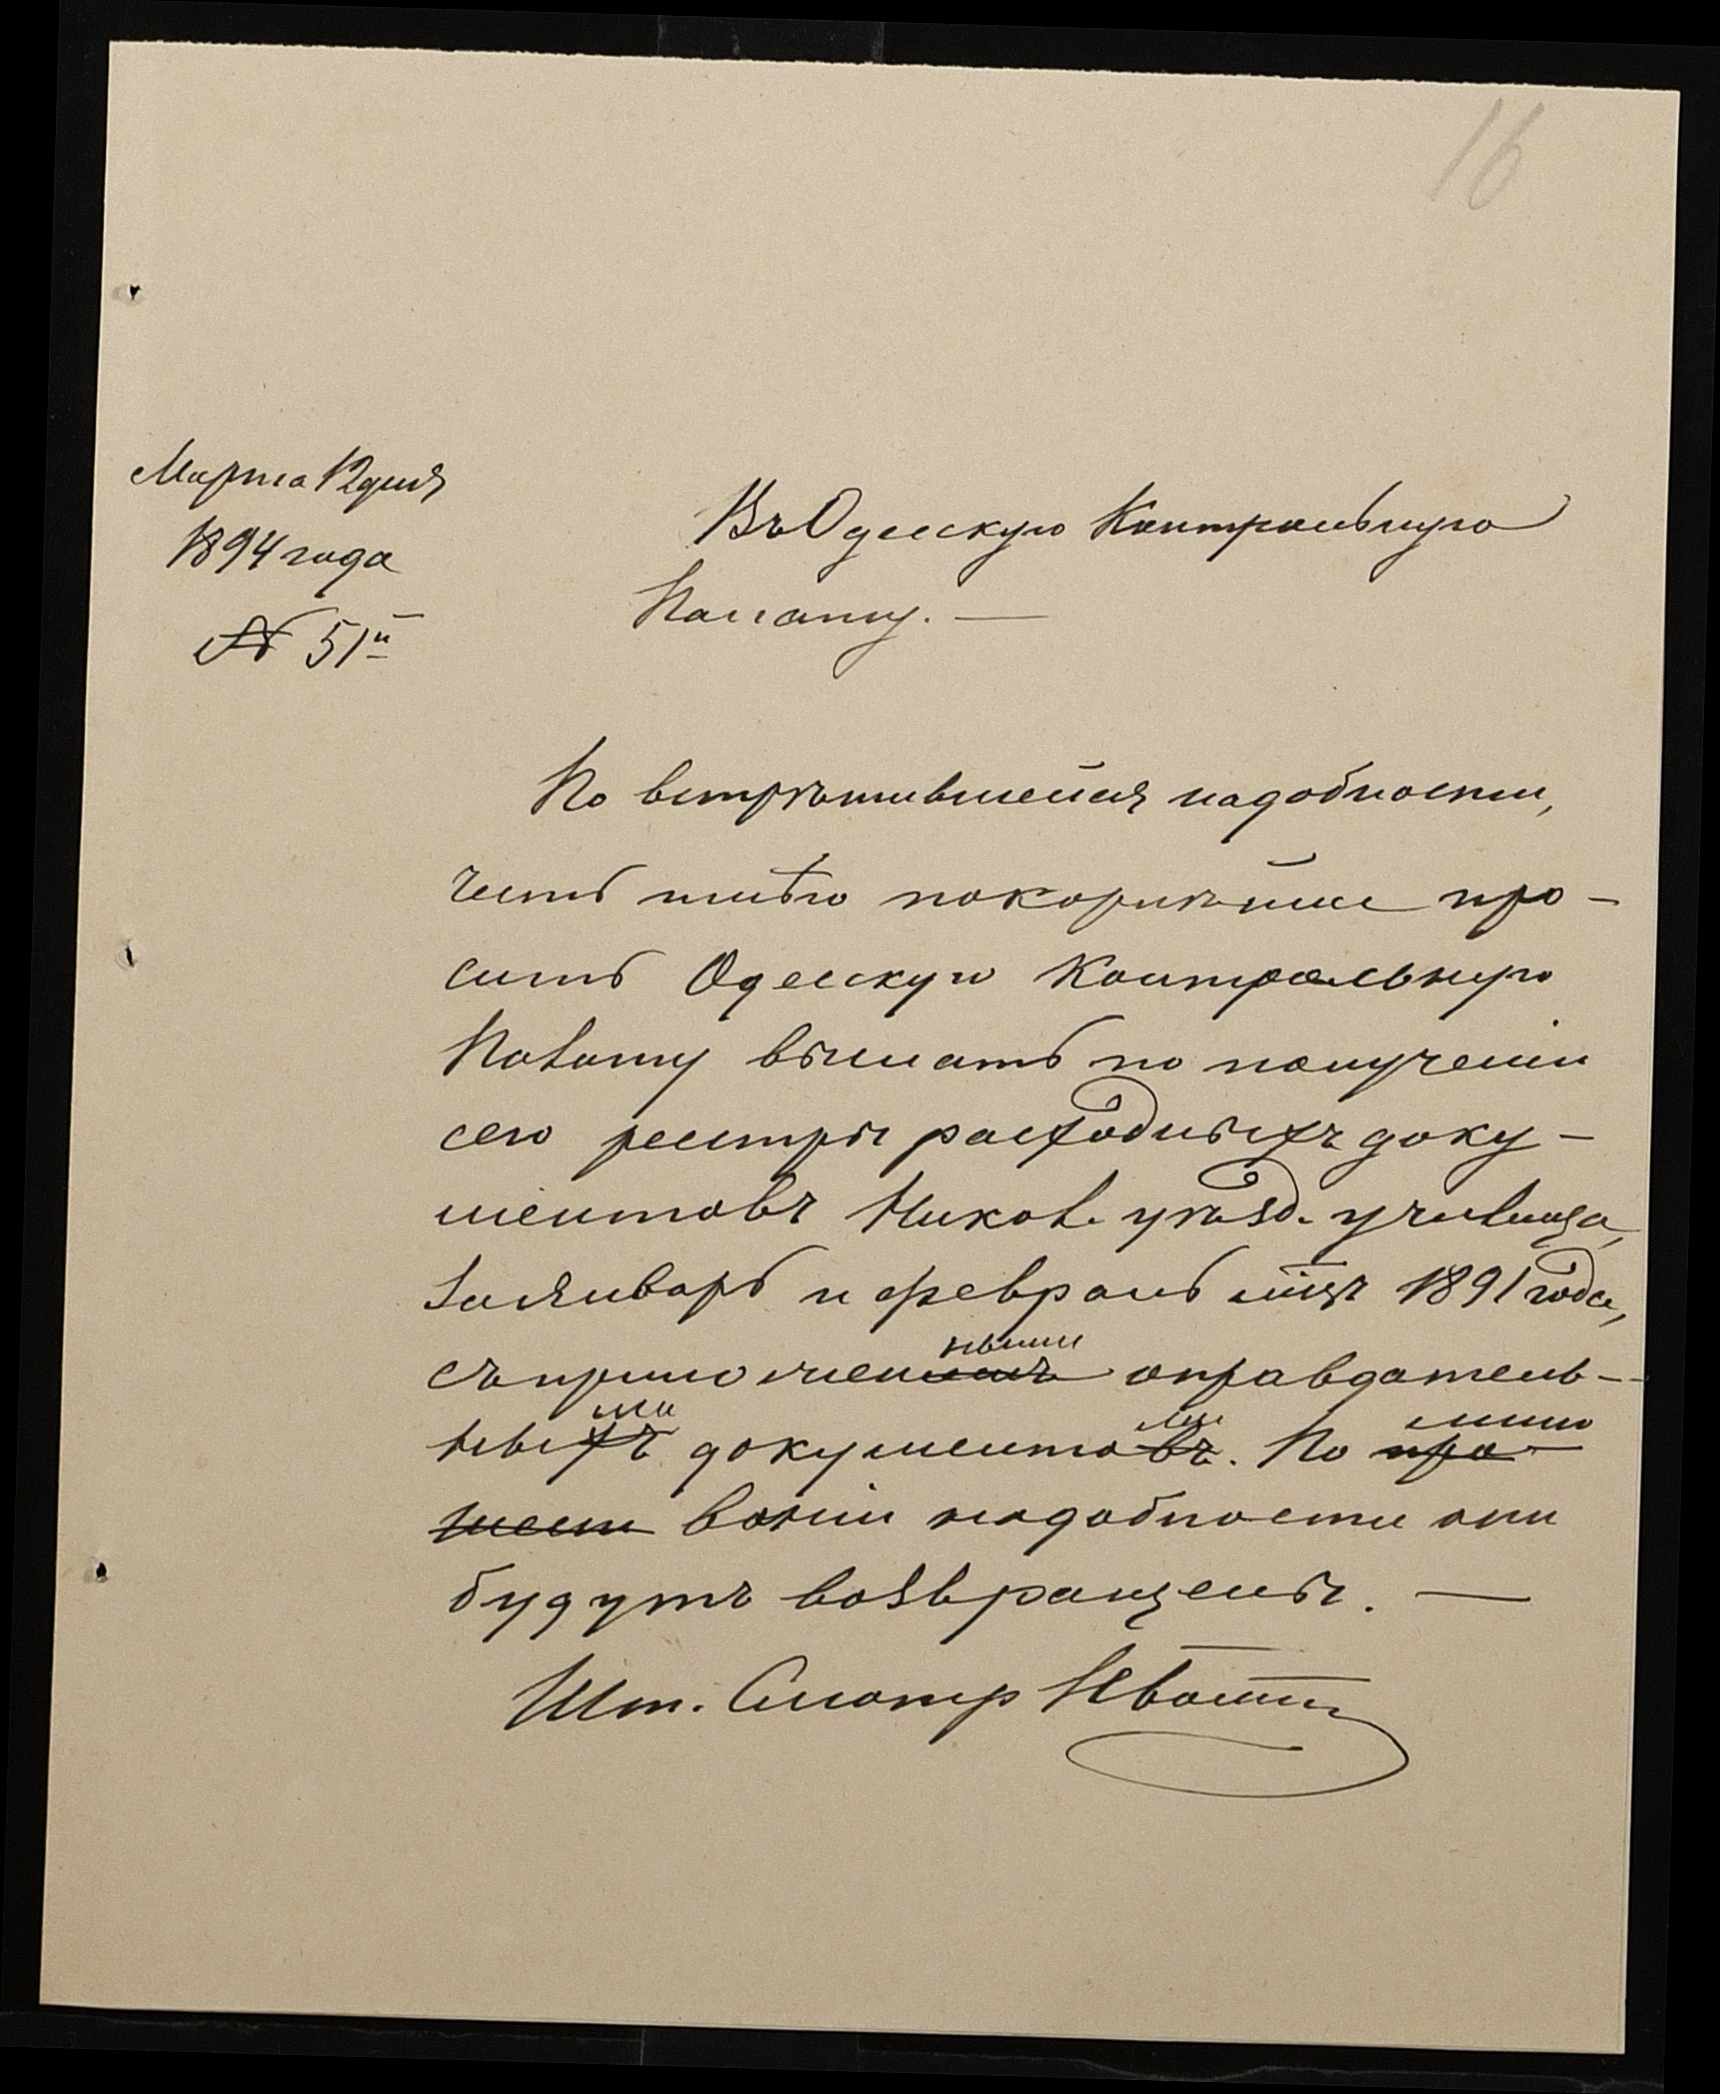 16
Марта 12 дня
1894 года
№ 51й
Въ Одесскую Контрольную
Палату. —
По встрѣтившейся надобности,
честь имѣю покорнѣйше про-
сить Одесскую Контрольную
Палату выслать по полученіи
сего реестры расходныхъ доку-
ментовъ Никол. уѣзд. училища,
за Январь и февраль мцъ 1891 года,
ными
съ приложеніемъ оправдатель-
ми
ныхъ документовъ. По про-
ми
мино
шест воніи надобности они
будутъ возвращены. —
Шт. Смотр